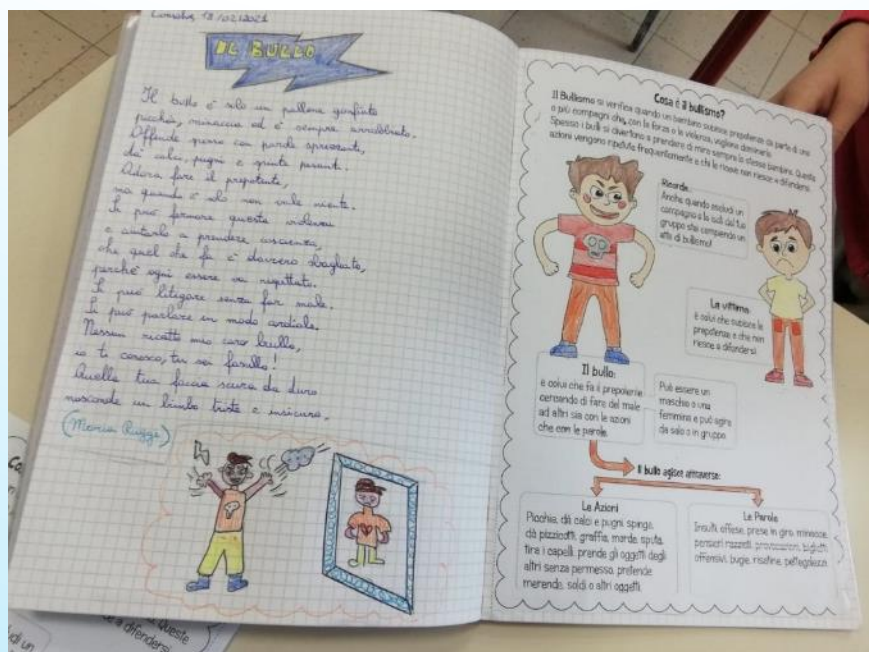 12/02/2021
IL BULLO
Il bullo è solo un pallone gonfiato
picchia, minaccia ed è sempre arrabbiato.
Offende spesso con parole sprezzanti,
dà calci, pugni e spinte pesanti.
Adora fare il prepotente,
ma quando è solo non vale niente.
Si può fermare questa violenza
e aiutarlo a prendere coscienza,
che quel che fa è davvero sbagliato,
perché ogni essere va rispettato.
Si può litigare senza far male.
Si può parlare in modo cordiale.
Nessun ricatto mio caro bullo,
io ti conosco, tu sei fasullo!
Quella tua faccia scura da duro
nasconde un bimbo triste e insicuro.
(Maria Ruggi)
Cosa è il bullismo?
Il Bullismo si verifica quando un bambino subisce prepotenze da parte di uno
o più compagni che, con la forza o la violenza, vogliono dominarlo.
Spesso i bulli si divertono a prendere di mira sempre lo stesso bambino. Queste
azioni vengono ripetute frequentemente e chi le riceve non riesce a difendersi.
Ricorda:
Anche quando escludi un
compagno o lo isoli dal tuo
gruppo stai compiendo un
atto di bullismo!
La vittima:
è colui che subisce le
prepotenze e che non
riesce a difendersi.
Il bullo:
è colui che fa il prepotente
cercando di fare del male
ad altri sia con le azioni
che con le parole.
Può essere un
maschio o una
femmina e può agire
da solo o in gruppo.
Il bullo agisce attraverso:
Le Azioni
Picchia, dà calci e pugni, spinge,
dà pizzicotti, graffia, morde, sputa,
tira i capelli, prende gli oggetti degli
altri senza permesso, pretende
merende, soldi o altri oggetti.
Le Parole
Insulti, offese, prese in giro, minacce,
pensieri razzisti, provocazioni, biglietti
offensivi, bugie, risatine, pettegolezzi.
Queste
a difendersi.